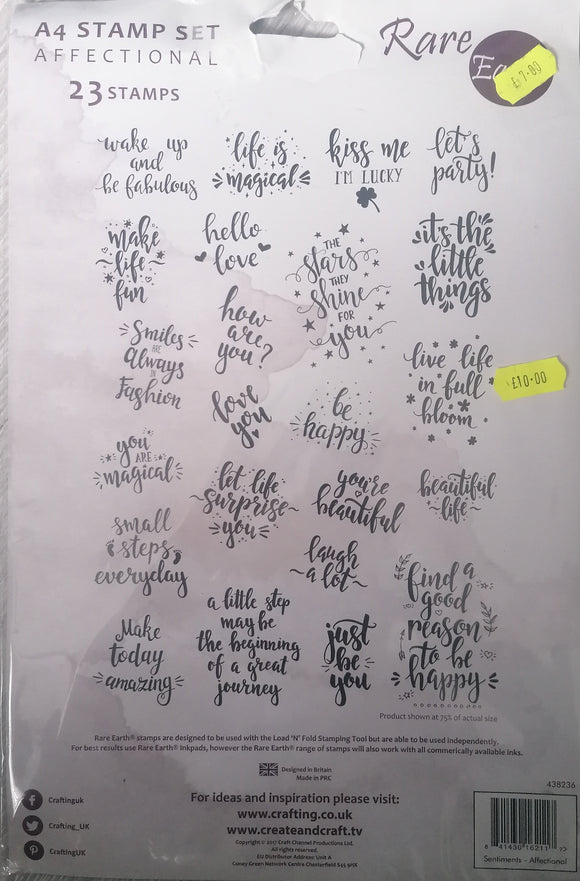 A4 STAMP SET
AFFECTIONAL
23 STAMPS
Rare
£7.00
wake up
and
be fabulous
life is
magical
kiss me
I'M LUCKY
let's
party!
make
life
fun
hello
love
THE
stars
THEY
shine
FOR
you
it's the
little
things
Smiles
ARE
Always
IN
Fashion
how
are
you?
live life
in full
bloom
£10.00
love
you
be
happy
you
ARE
magical
let life
surprise
you
you're
beautiful
beautiful
life
small
steps
everyday
laugh
a lot
find a
good
reason
to be
happy
Make
today
amazing
a little step
may be
the beginning
of a great
journey
just
be
you
Product shown at 75% of actual size
Rare Earth® stamps are designed to be used with the Load 'N' Fold Stamping Tool but are able to be used independently.
For best results use Rare Earth® Inkpads, however the Rare Earth® range of stamps will also work with all commerically available inks.
Designed in Britain
Made in PRC
438236
Craftinguk
Crafting_UK
CraftingUK
For ideas and inspiration please visit:
www.crafting.co.uk
www.createandcraft.tv
Copyright © 2017 Craft Channel Productions Ltd.
All rights reserved.
EU Distributor Address: Unit A
Coney Green Network Centre Chesterfield S45 9PW
8 41430 16211
Sentiments - Affectional